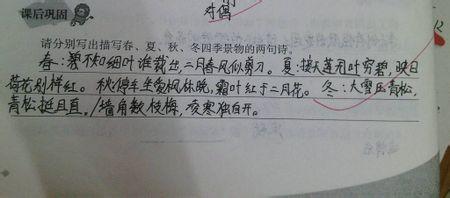 对偶
课后巩固
请分别写出描写春、夏、秋、冬四季景物的两句诗。
春:不知细叶谁裁出,二月春风似剪刀。夏:接天莲叶无穷碧,映日
荷花别样红。秋:停车坐爱枫林晚,霜叶红于二月花。冬:大雪压青松,
青松挺且直。/墙角数枝梅,凌寒独自开。